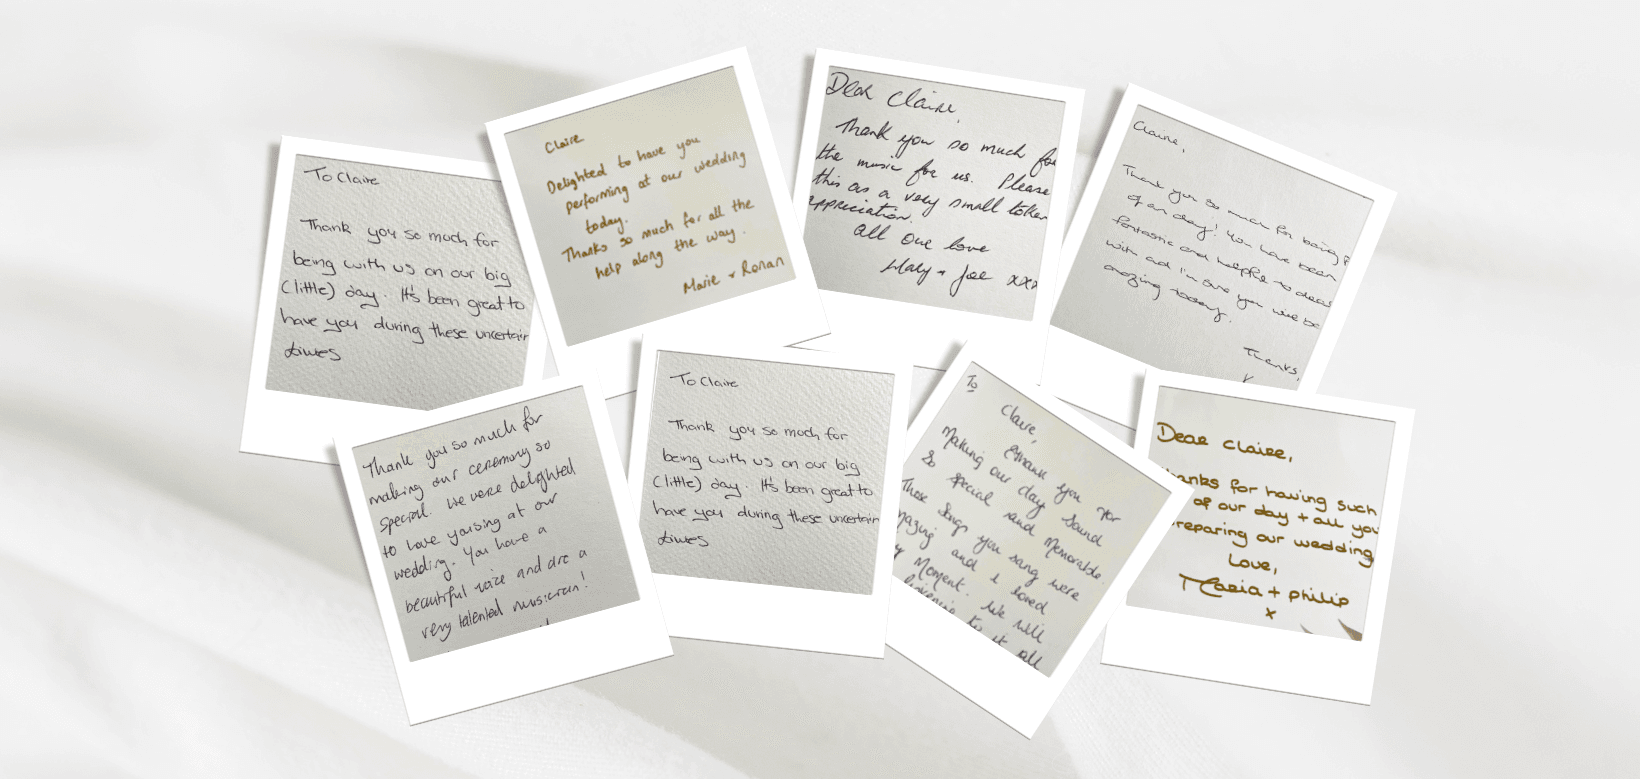 To Claire
Thank you so much for
being with us on our big
(little) day. It's been great to
have you during these uncertain
times
Claire
Delighted to have you
performing at our wedding
today.
Thanks so much for all the
help along the way.
Marie + Ronan
Dear Claire,
Thank you so much for
the music for us. Please
this as a very small token
appreciation.
All our love
Mary + Joe xxx
Claire,
Thank you so much for being
of our day! You have been
fantastic and helpful to deal
with and I'm sure you will be
amazing today.
Thanks,
Thank you so much for
making our ceremony so
special. We were delighted
to have you sing at our
wedding. You have a
beautiful voice and are a
very talented musician!
To Claire
Thank you so much for
being with us on our big
(little) day. It's been great to
have you during these uncertain
times
To
Claire,
Thank you for
Making our day sound
So special and Memorable.
These songs you sang were
mazing and I loved
Moment. We will
to it all
Dear Claire,
hanks for having such
of our day + all you
reparing our wedding
Love,
Maria + Philip
x